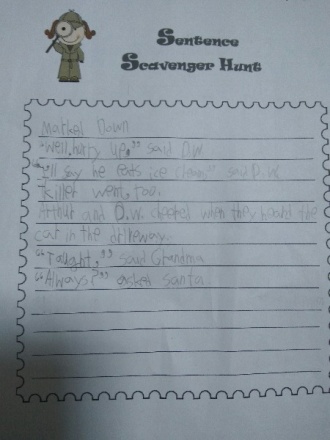 Sentence
Scavenger Hunt
Market Down
"Well, hurry up," said D.W.
"I'll say he eats ice cleam" said D.W.
killer went too.
Arthur and D.W. cheeled when they heard the
car in the driveway.
"Taught," said Grandma
"Always?" asked santa